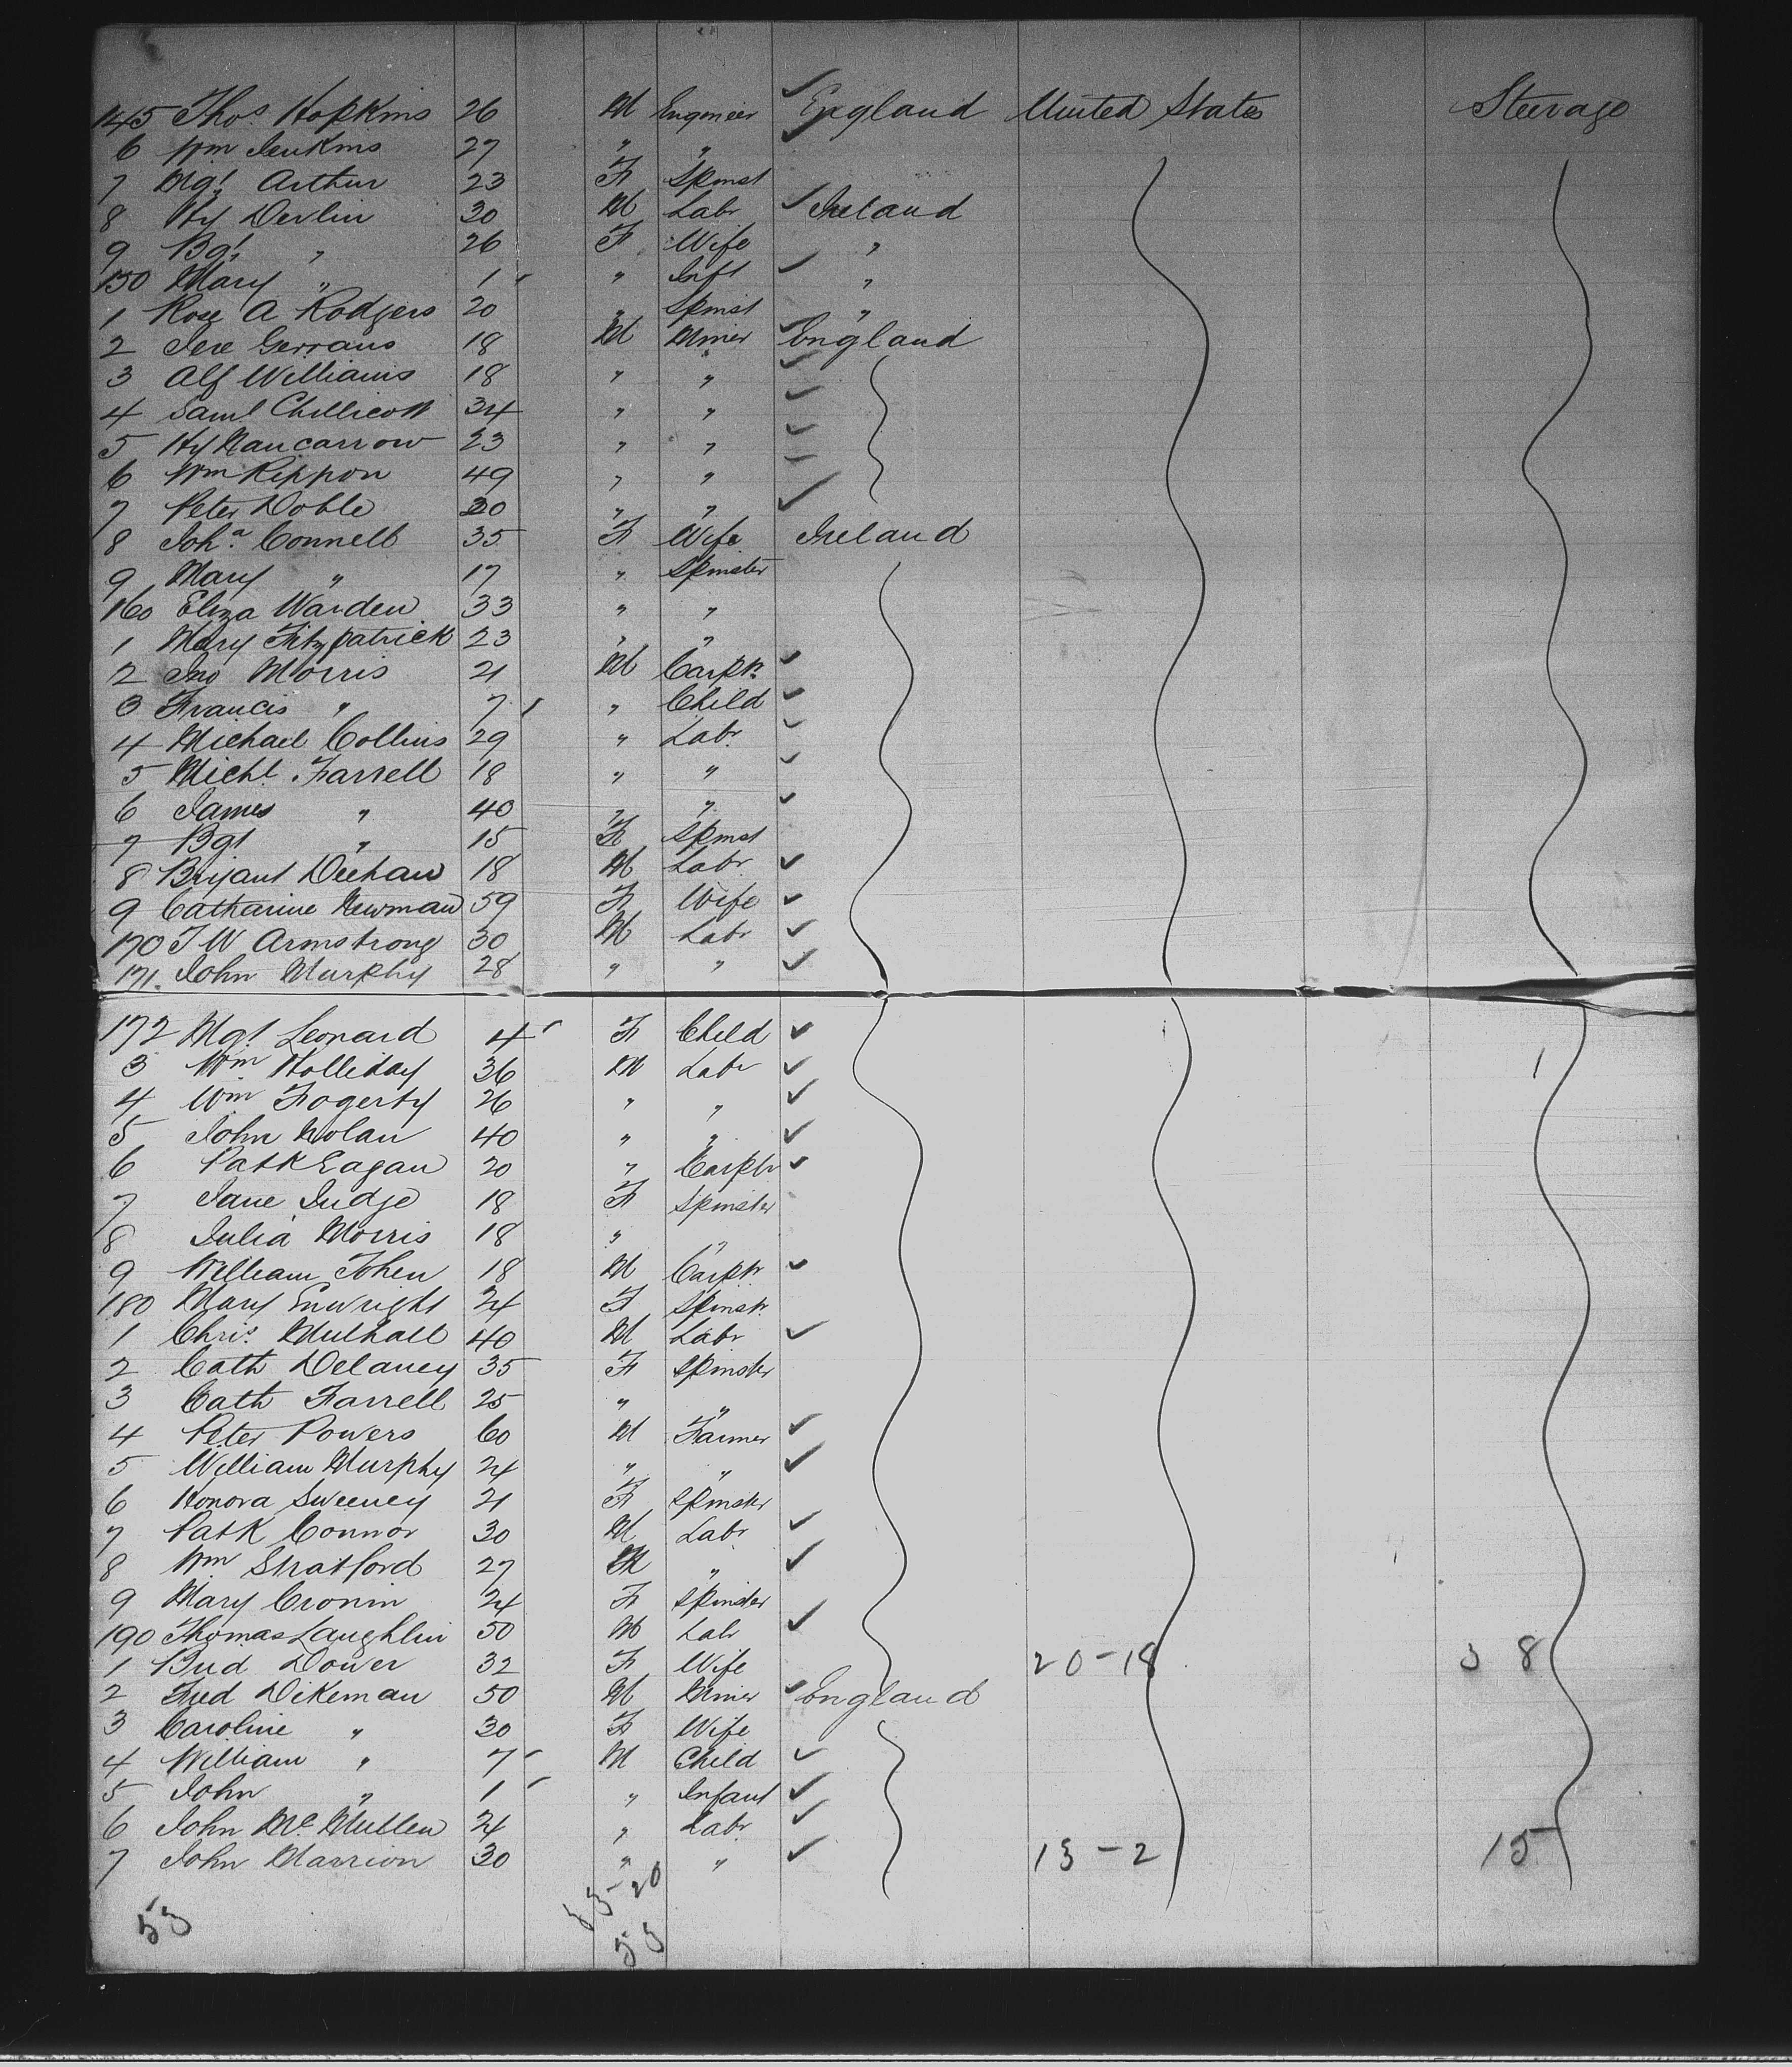 145 Thos. Hopkins 26 M Engineer England United States Steerage
6 Wm Jenkins 27 " "
7 Mgt. Arthur 23 F Spinst
8 Hy Devlin 30 M Labr Ireland
9 Bgt. " 26 F Wife "
150 Mary " 1 " Inft "
1 Rose A Rodgers 20 " Spinst "
2 Jere Gerrans 18 M Miner England
3 Alf Williams 18 " "
4 Saml Chillicott 34 " "
5 Hy Nancarrow 23 " "
6 Wm Rippon 49 " "
7 Peter Doble 20 " "
8 Joha. Connell 35 F Wife Ireland
9 Mary " 17 " Spinster
160 Eliza Warden 33 " "
1 Mary Fitzpatrick 23 " "
2 Jno Morris 21 M Carptr.
3 Francis " 7 " Child
4 Michael Collins 29 " Labr.
5 Michl. Farrell 18 " "
6 James " 40 " "
7 Bgt " 15 F Spinst
8 Bryant Deehan 18 M Labr.
9 Catharine Newman 59 F Wife
170 J W Armstrong 30 M Labr
171. John Murphy 28 " "
172 Mgt. Leonard 4 F Child
3 Wm Holliday 36 M Labr 1
4 Wm Fogerty 26 " "
5 John Nolan 40 " "
6 Patk Eagan 20 " Carptr
7 Jane Judge 18 F Spinster
8 Julia Morris 18 " "
9 William Tohen 18 M Carptr.
180 Mary Enwright 24 F Spinstr.
1 Chris. Mulhall 40 M Labr.
2 Cath Delaney 35 F Spinster
3 Cath Farrell 25 " "
4 Peter Powers 60 M Farmer
5 William Murphy 24 " "
6 Honora Sweeney 21 F Spinster
7 Patk Connor 30 M Labr
8 Wm Stratford 27 M "
9 Mary Cronin 24 F Spinster
190 Thomas Laughlin 50 M Labr
1 Brid Dower 32 F Wife 20-18 38
2 Fred Dikeman 50 M Miner England
3 Caroline " 30 F Wife
4 William " 7 M Child
5 John " 1 " Infant
6 John McMullen 24 " Labr.
7 John Marrion 30 " " 13-2 15
33-20
53 53